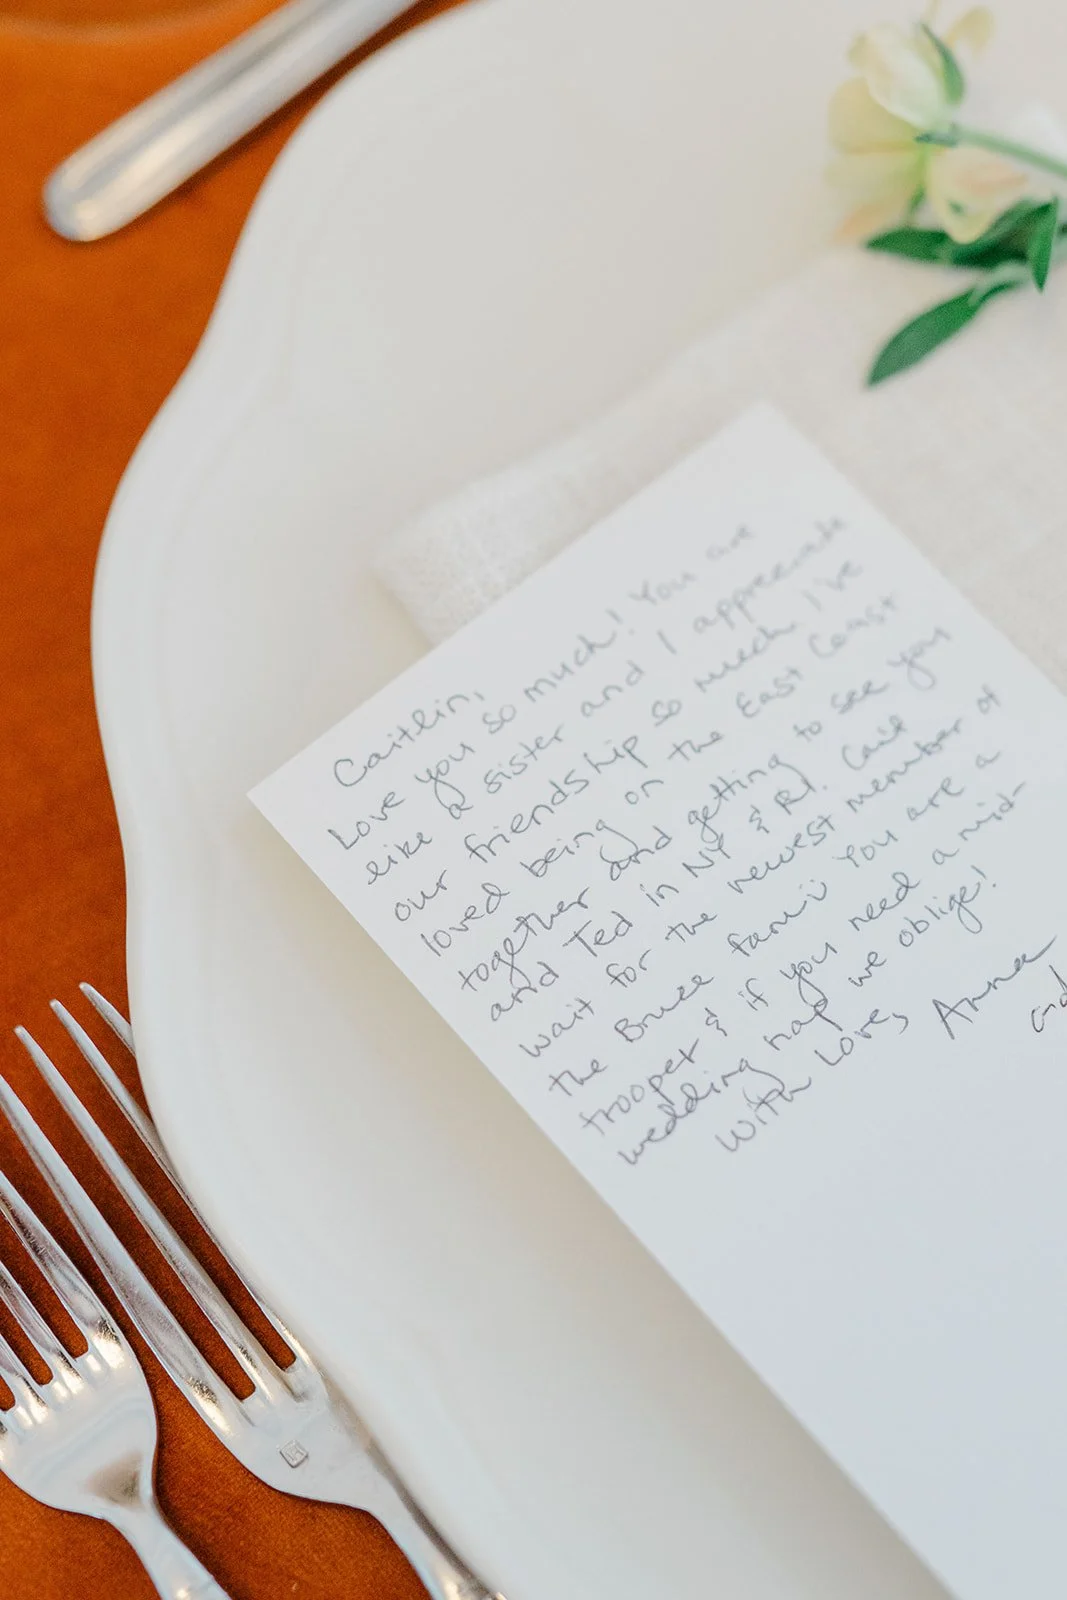 Caitlin,
Love you so much! You are
like a sister and I appreciate
our friendship so much. I've
loved being on the East Coast
together and getting to see you
and Ted in NY & RI. Can't
wait for the newest member of
the Bruce fam :) You are a
trooper & if you need a mid-
wedding nap we oblige!
With Love, Anna
and